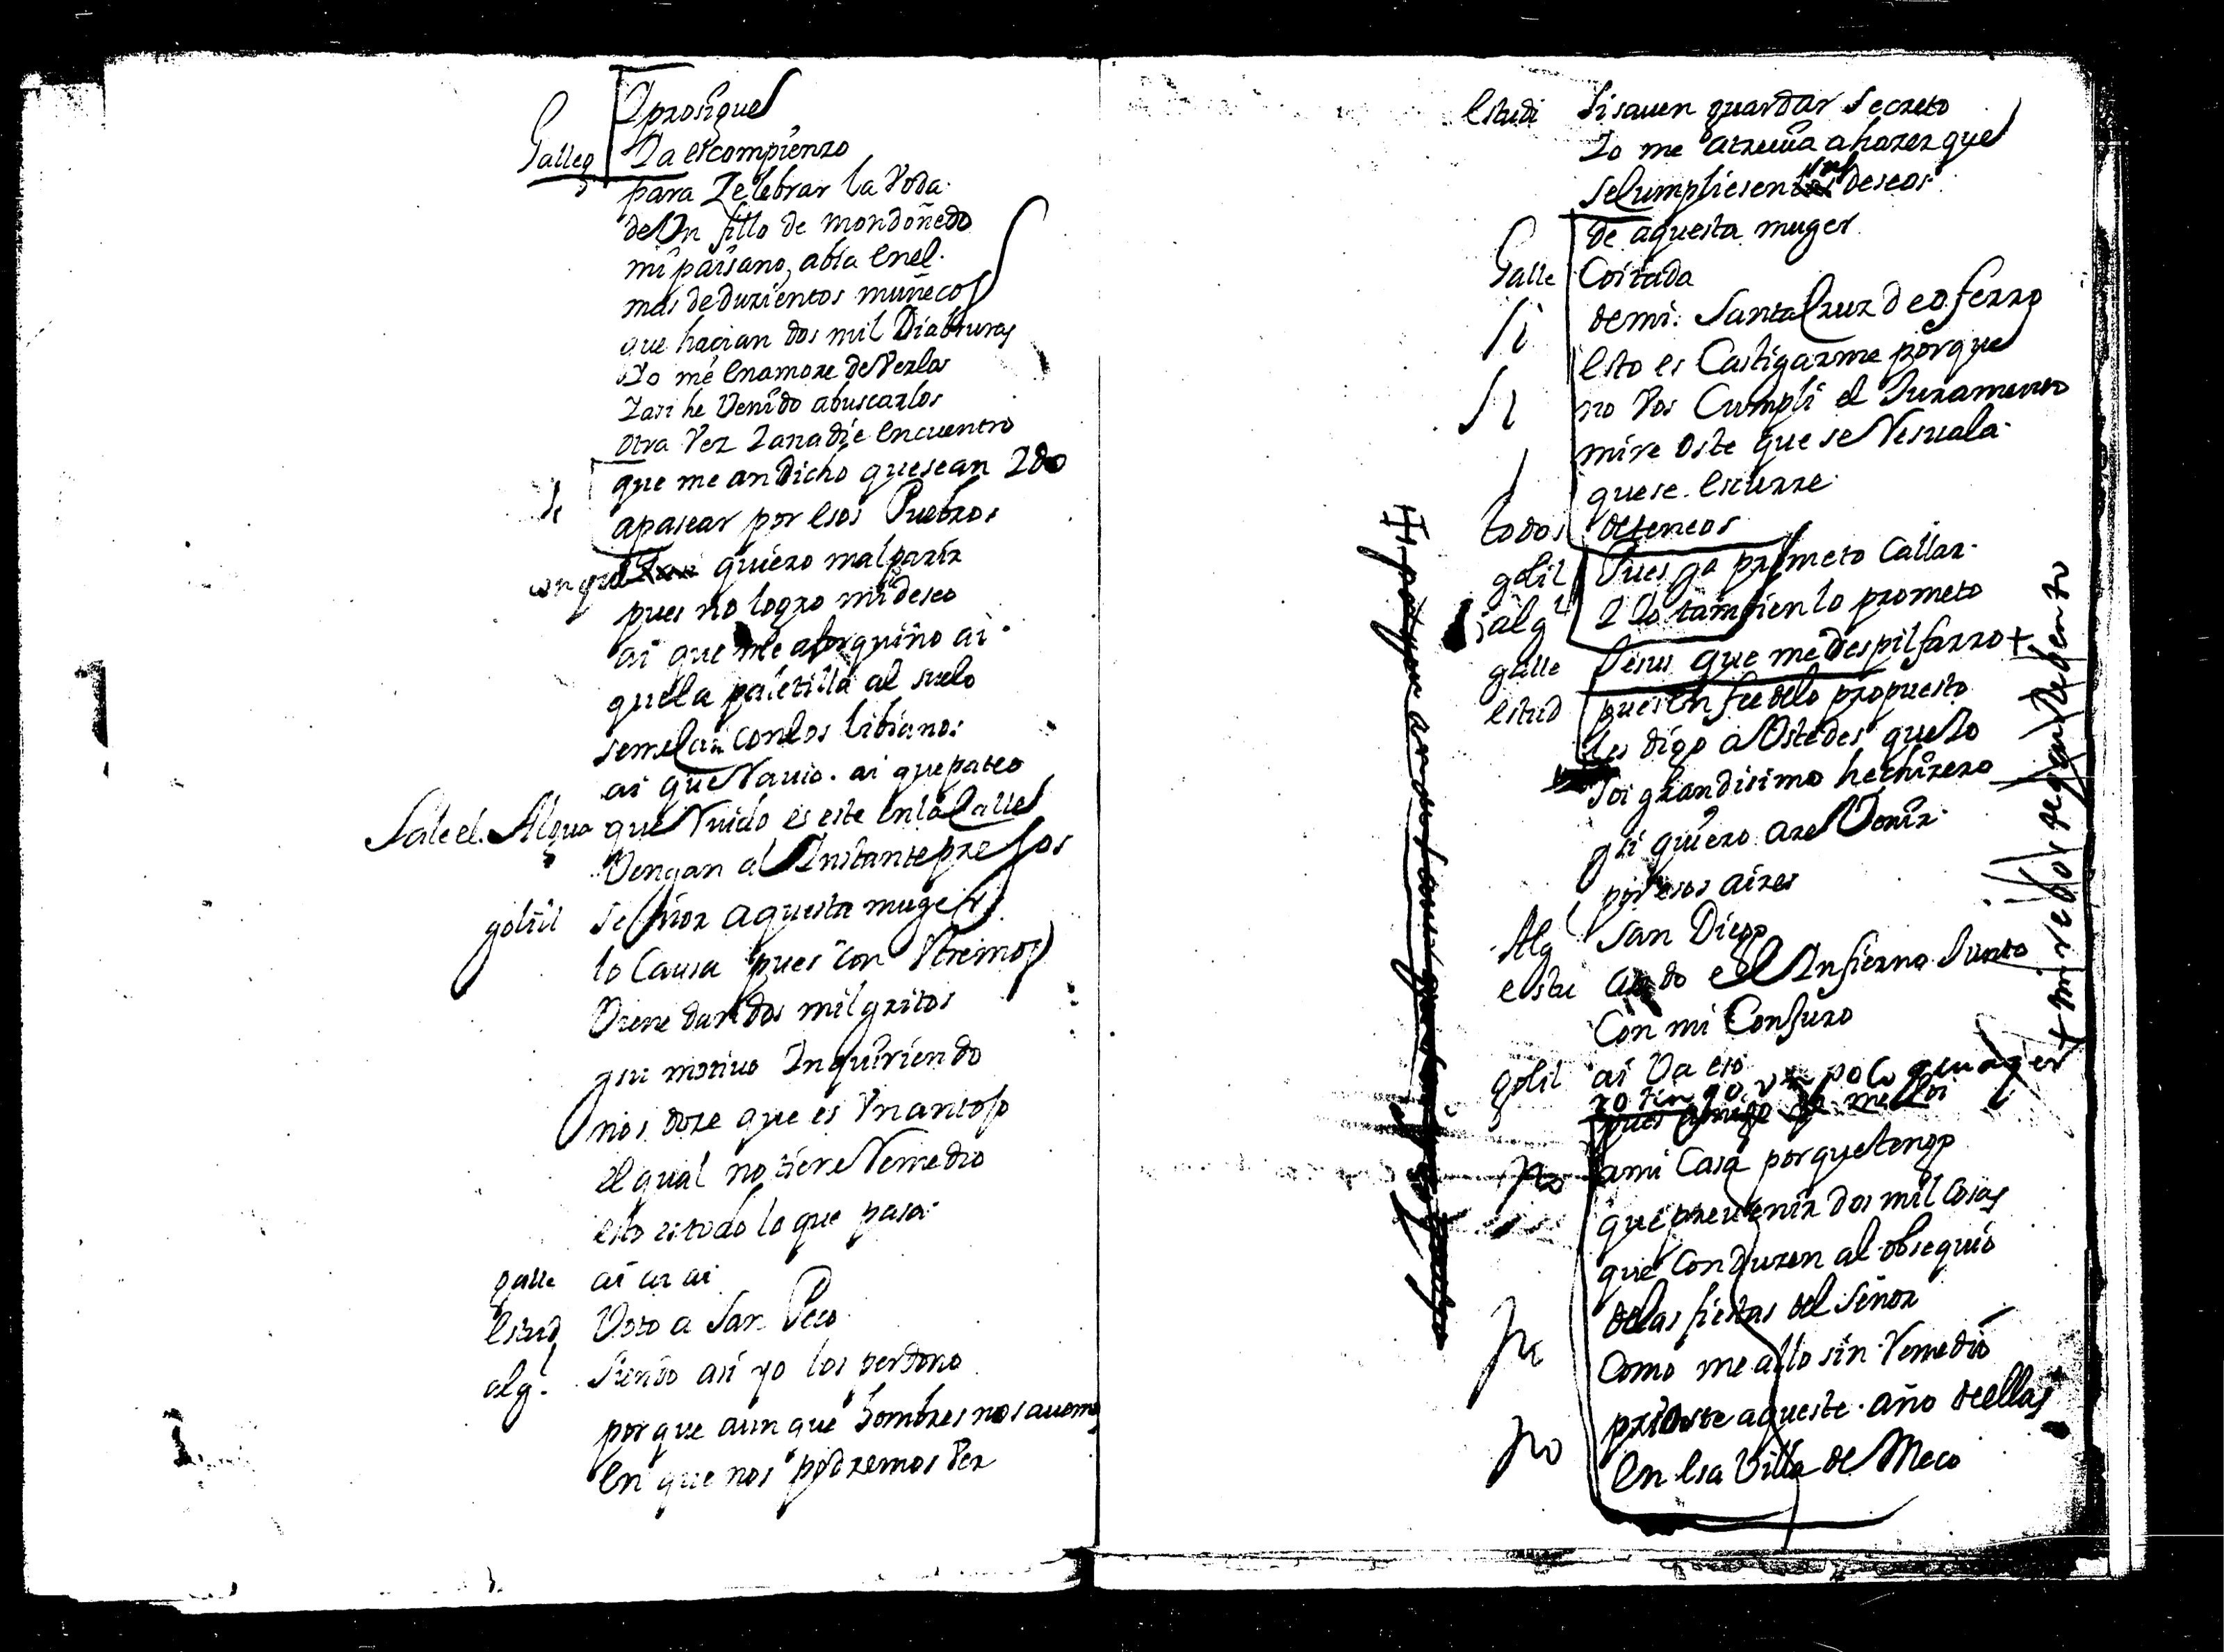 prosigue
Galleg Ya escompienzo
para Zelebrar la Voda
de Vn fillo de mondoñedo
mi paisano, abia en el
mas de duzientos muñecos
que hacian dos mil Diabruras
Yo me enamore de Verlos
Y asi he Venido abuscarlos
otra Vez Y anadie encuentro
que me an Dicho que se an Ydo
apasear por esos Puebros
con que quiero malparir
pues no logro mi deseo
ai que me aforguiño ai
que la paletilla al suelo
se me cai con los libianos
ai que Ravio. ai que pateo
Sale el Algua que Ruido es este en la Calle
Vengan al Instante presos
golill señor aquesta muger
lo Causa pues con stremos
Viene dando mil gritos
y su motiuo Inquiriendo
nos dize que es Vn antojo
el qual no tiene Remedio
esto es todo lo que pasa
galle ai ai ai
estud Voto a San Peco
alg.l Siendo asi yo los perdono
por que aun que hombres no sauemos
en que nos podremos Ver
estudi Si sauen guardar secreto
Yo me atreuia a hazer que
se Cumpliesen los deseos
de aquesta muger
Galle Coitada
Si de mi: Santa Cruz de o ferro
esto es Castigarme porque
Si no Vos Cumpli el Juramento
mire oste que se Resuala
que se escurre
todos deteneos
golil Pues yo prometo Callar
alg.l Y Yo tambien lo prometo
galle Jesus que me despilfarro +
estud pues en fee de lo propuesto
les digo a Ostedes que Yo
soi grandisimo hechizero
y si quiero are Venir
por esos aires
Alg San Diego
estu a todo el Infierno Junto
Con mi Conjuro
golil ai Va eso
yo tengo un poco que azer
pues amigo me Voi
no a mi Casa porque tengo
que prevenir dos mil cosas
que Conduzen al obsequio
de las fiestas del Señor
no Como me allo sin Remedio
prioste aqueste año de ellas
no en esa Villa de Meco
+ mire bos que rebento